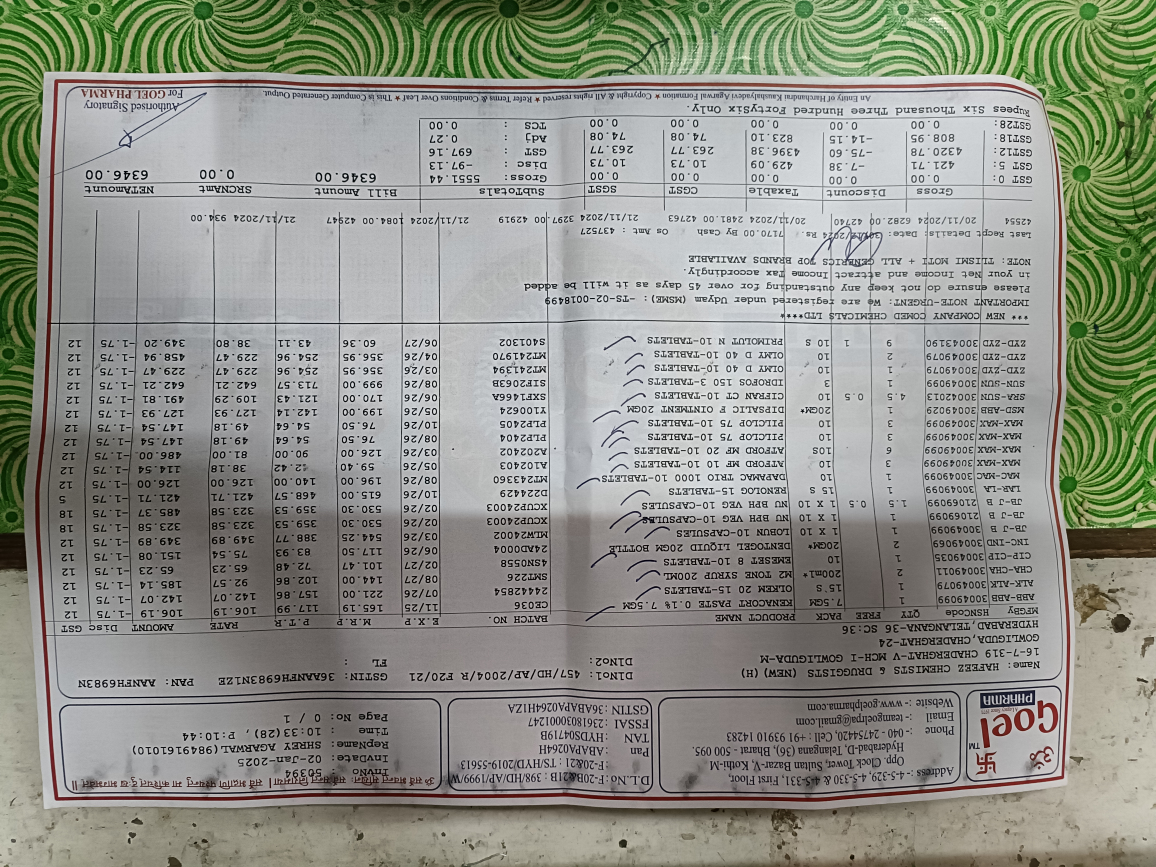 ॐ सर्वे भवन्तु सुखिनः सर्वे सन्तु निरामया ॥ सर्वे भद्राणि पश्यन्तु मा कश्चित् दुःख भाग्भवेत् ॥
Goel
PHARMA
A Legacy Since 1975
TM
Address : - 4-5-329, 4-5-330 & 4-5-331, First Floor,
Opp. Clock Tower, Sultan Bazar-Y, Kothi-M
Hyderabad-D, Telangana (36), Bharat - 500 095.
Phone : - 040 - 24754420, Cell : +91 93910 14283
Email : - teamgoelpa@gmail.com
Website : - www.goelpharma.com
D.L.No1 : F-20B&21B : 398/HD/AP/1999/W
F-20&21 : TS/HYD/2019-55613
Pan : ABAPA0264H
TAN : HYDS04719B
FSSAI : 23618030001247
GSTIN : 36ABAPA0264H1ZA
InvNo : 50394
InvDate: 02-Jan-2025
RepName: SHREY AGARWAL(9849161010)
Time : 10:33(28), P:10:44
Page No: 0 / 1
Name: HAFEEZ CHEMISTS & DRUGGISTS (NEW) (H)
16-7-319 CHADERGHAT-V MCH-I GOWLIGUDA-M
GOWLIGUDA,CHADERGHAT-24
HYDERABAD,TELANGANA-36 SC:36
DlNo1: 457/HD/AP/2004/R F20/21 GSTIN: 36AANFH6983N1ZE PAN: AANFH6983N
DlNo2: FL :
MfgBy HSNcode QTY FREE PACK PRODUCT NAME BATCH NO. E.X.P M.R.P P.T.R RATE AMOUNT Disc GST
ABB-ABB 30049099 1 7.5GM KENACORT PASTE 0.1% 7.5GM CE036 11/25 165.19 117.99 106.19 106.19 -1.75 12
ALK-ALK 30049079 1 15'S OLKEM 20 15-TABLETS 24442854 07/26 221.00 157.86 142.07 142.07 -1.75 12
CHA-CHA 30049011 2 200ml* M2 TONE SYRUP 200ML SMT226 08/27 144.00 102.86 92.57 185.14 -1.75 12
CIP-CIP 30049035 1 10 EMESET 8 10-TABLETS 4SN0558 02/27 101.47 72.48 65.23 65.23 -1.75 12
INC-IND 30049069 2 20GM* DENTOGEL LIQUID 20GM BOTTLE 24AD0004 06/26 117.50 83.93 75.54 151.08 -1.75 12
JB-J B 30049099 1 1 X 10 LOBUN 10-CAPSULES MLW24002 03/26 544.25 388.77 349.89 349.89 -1.75 12
JB-J B 21069099 1 1 X 10 NU BPH VEG 10-CAPSULES XCUP24003 02/26 530.30 359.53 323.58 323.58 -1.75 18
JB-J B 21069099 1.5 0.5 1 X 10 NU BPH VEG 10-CAPSULES XCUP24003 02/26 530.30 359.53 323.58 485.37 -1.75 18
LAR-LA 30049099 1 15 S RENOLOG 15-TABLETS D224429 10/26 615.00 468.57 421.71 421.71 -1.75 5
MAC-MAC 30049099 1 10 DANAMAC TRIO 1000 10-TABLETS MT243363 08/26 196.00 140.00 126.00 126.00 -1.75 12
MAX-MAX 30049099 3 10 ATFORD MF 10 10-TABLETS A102403 05/26 59.40 42.42 38.18 114.54 -1.75 12
MAX-MAX 30049099 6 10S ATFORD MF 20 10-TABLETS A202402 03/26 126.00 90.00 81.00 486.00 -1.75 12
MAX-MAX 30049099 3 10 PILCLOP 75 10-TABLETS PLP2404 08/26 76.50 54.64 49.18 147.54 -1.75 12
MAX-MAX 30049099 3 10 PILCLOP 75 10-TABLETS PLP2405 10/26 76.50 54.64 49.18 147.54 -1.75 12
MSD-ABB 30049029 1 20GM* DIPSALIC F OINTMENT 20GM Y100624 05/26 199.00 142.14 127.93 127.93 -1.75 12
SRA-SUN 30042013 4.5 0.5 10 CIFRAN CT 10-TABLETS SXF1466A 06/26 170.00 121.43 109.29 491.81 -1.75 12
SUN-SUN 30049099 1 3 IDROFOS 150 3-TABLETS SIF2063B 08/26 999.00 713.57 642.21 642.21 -1.75 12
ZYD-ZYD 30049079 1 10 OLMY D 40 10-TABLETS MT241394 03/26 356.95 254.96 229.47 229.47 -1.75 12
ZYD-ZYD 30049079 2 10 OLMY D 40 10-TABLETS MT241970 04/26 356.95 254.96 229.47 458.94 -1.75 12
ZYD-ZYD 30043190 9 1 10 S PRIMOLUT N 10-TABLETS S401302 06/27 60.36 43.11 38.80 349.20 -1.75 12
*** NEW COMPANY COMED CHEMICALS LTD****
IMPORTANT NOTE-URGENT: We are registered under Udyam (MSME): -TS-02-0018499
Please ensure do not keep any outstanding for over 45 days as it will be added
in your Net Income and attract Income Tax accordingly.
NOTE: TLISMI MOTI + ALL GENERICS TOP BRANDS AVAILABLE
Last Recpt Details: Date: 30/12/2024 Rs. 7170.00 By Cash Os Amt : 437527
42554 20/11/2024 6282.00 42740 20/11/2024 2481.00 42763 21/11/2024 3297.00 42919 21/11/2024 1084.00 42947 21/11/2024 934.00
Gross Discount Taxable CGST SGST Subtotals Bill Amount SRCNAmt NETAmount
GST 0: 0.00 0.00 0.00 0.00 0.00 Gross: 5551.44 6346.00 0.00 6346.00
GST 5: 421.71 -7.38 429.09 10.73 10.73 Disc : -97.13
GST12: 4320.78 -75.60 4396.38 263.77 263.77 GST : 697.16
GST18: 808.95 -14.15 823.10 74.08 74.08 Adj : 0.27
GST28: 0.00 0.00 0.00 0.00 0.00 TCS : 0.00
Rupees Six Thousand Three Hundred Fortysix Only.
For GOEL PHARMA
Authorised Signatory
An Entity of Harchandrai Kaushalyadevi Agarwal Formation ★ Copyright & All rights reserved ★ Refer Terms & Conditions Over Leaf ★ This is Computer Generated Output.